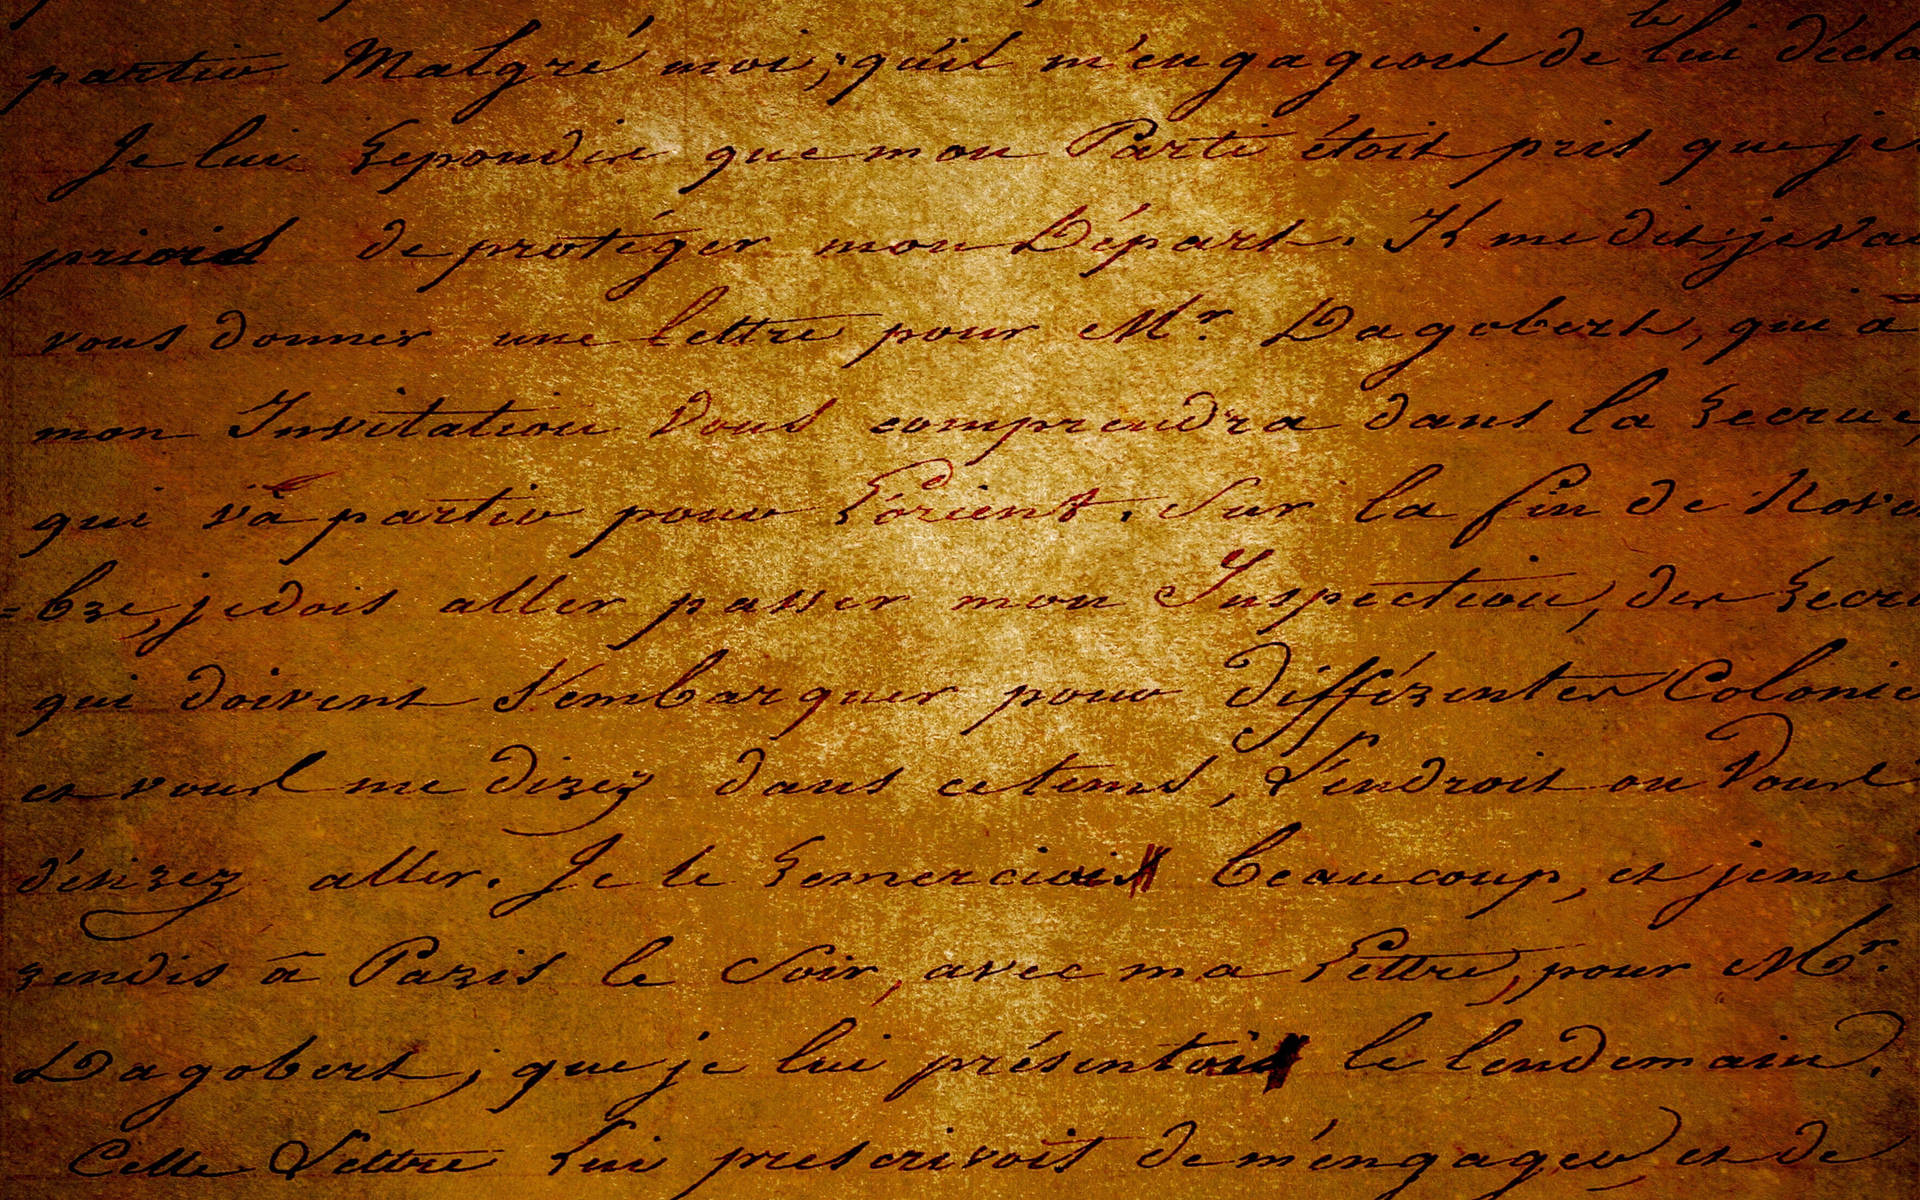 partir Malgré moi; qu'il m'engageoit de le lui décla
Je lui Repondis que mon Parti étoit pris que je
priois de protéger mon Départ. Il me dit; je va
vous donner une Lettre pour Mr. Dagobert, qui à
mon Invitation Vous comprendra dans la Recrue,
qui va partir pour L'orient. Sur la fin de Nove
=bre, je dois aller passer mon Inspection, des Recru
qui doivent S'embarquer pour différentes Colonie
et vous me direz dans ce tems, L'endroit ou Vous
désirez aller. Je le Remerciois beaucoup, et je me
rendis à Paris le Soir, avec ma Lettre, pour Mr.
Dagobert, que je lui présentois le lendemain.
Cette Lettre Lui prescrivoit de m'engager, et de